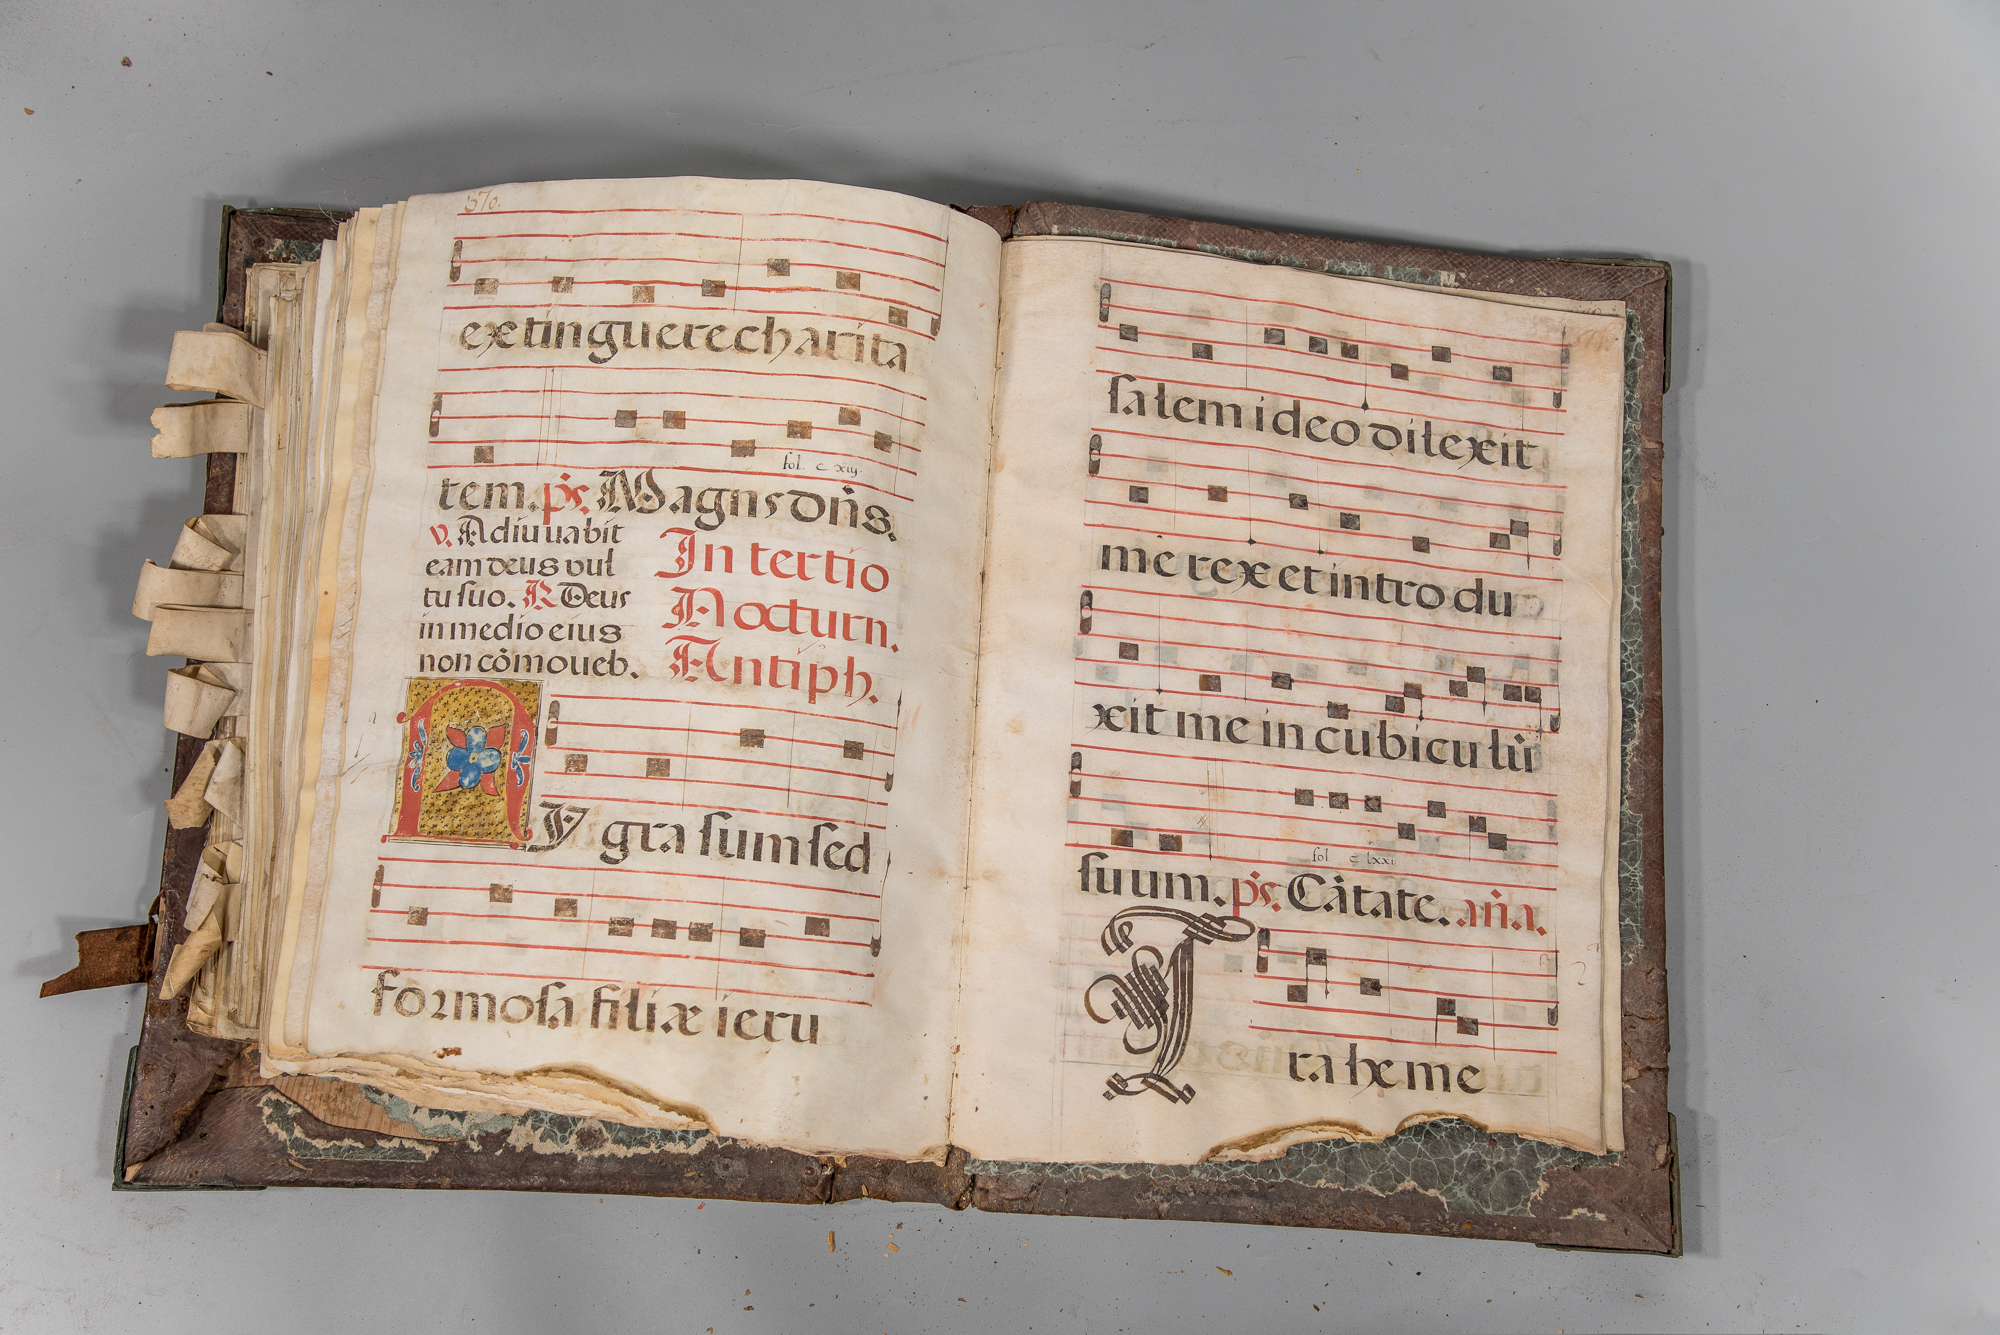 570.
extinguere charita
fol. c xiij.
tem. ps. Magnus dn̄s.
v. Adiuuabit
eam deus vul
tu suo. R Deus
in medio eius
non cōmoueb.
In tertio
Nocturn.
Antiph.
NIgra sum sed
formosa filiæ ieru
571.
salem ideo dilexit
me rex et introdu
xit me in cubiculū
fol. c lxxi
suum. ps. Cātate. añā.
Trahe me